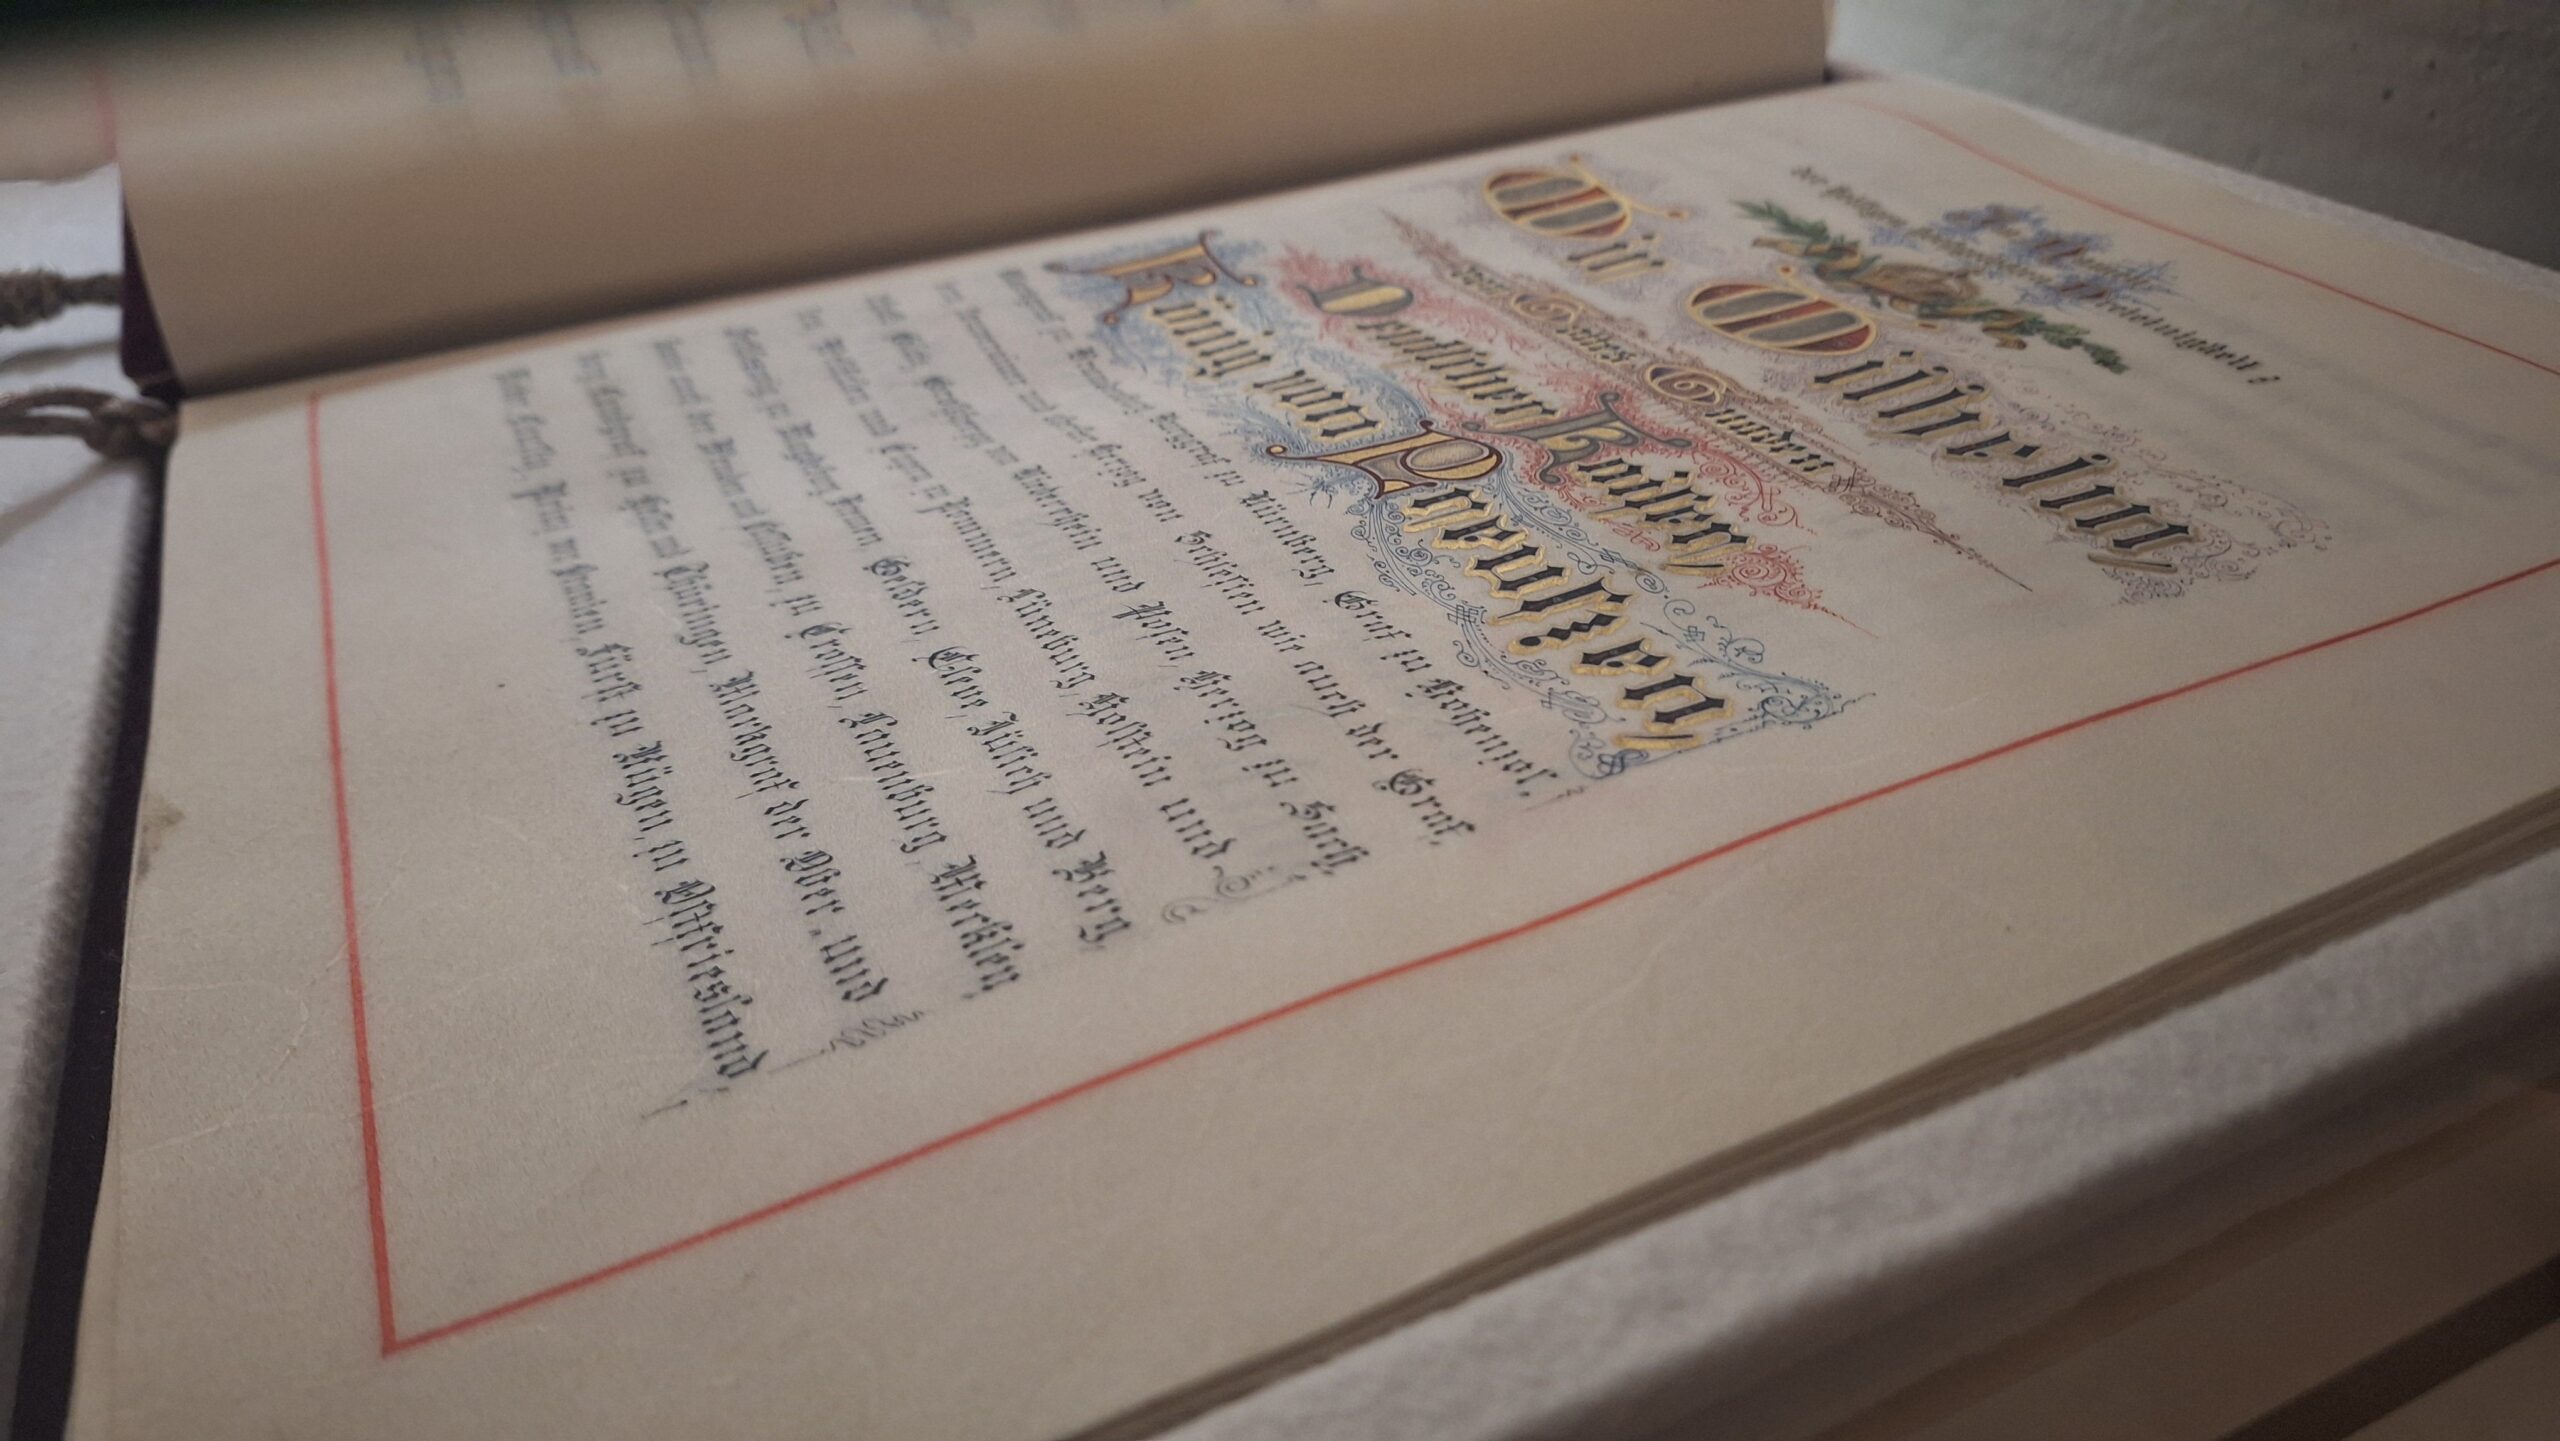 Im Namen
der heiligen hochheiligen Dreieinigkeit!
Wir Wilhelm
von Gottes Gnaden
Deutscher Kaiser,
König von Preußen,
Markgraf zu Brandenburg, Burggraf zu Nürnberg, Graf zu Hohenzol,
lern, souverainer und oberster Herzog von Schlesien wie auch der Graf,
schaft Glatz, Großherzog von Niederrhein und Posen, Herzog zu Sach
sen, Westfalen und Engern, zu Pommern, Lüneburg, Holstein und
Schleswig, zu Magdeburg, Bremen, Geldern, Cleve, Jülich und Berg,
sowie auch der Wenden und Cassuben, zu Crossen, Lauenburg, Mecklen,
burg, Landgraf zu Hessen und Thüringen, Markgraf der Ober- und
Nieder Lausitz, Prinz von Oranien, Fürst zu Rügen, zu Ostfriesland,